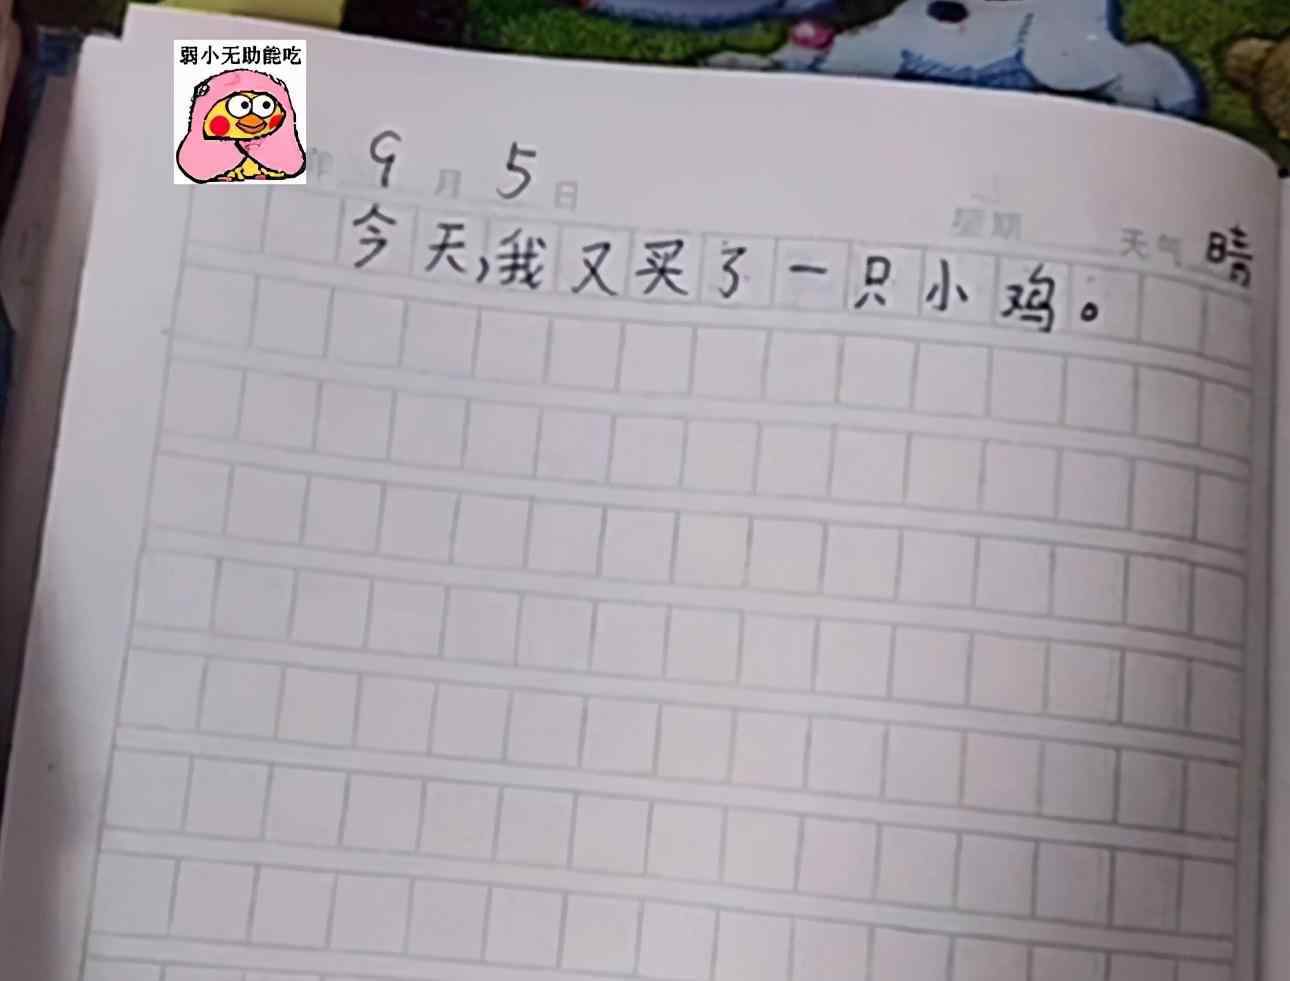 弱小无助能吃
年 9 月 5 日 星期 天气 晴
今天,我又买了一只小鸡。